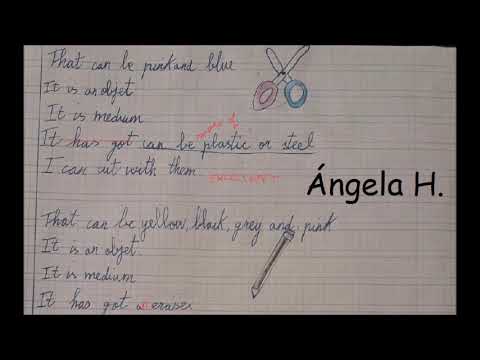 That can be pink and blue
It is an objet
It is medium
made of
It has got can be plastic or steel
I can cut with them
EXCELLENT!
Ángela H.
That can be yellow, black, grey and pink
It is an objet.
It is medium
It has got a eraser